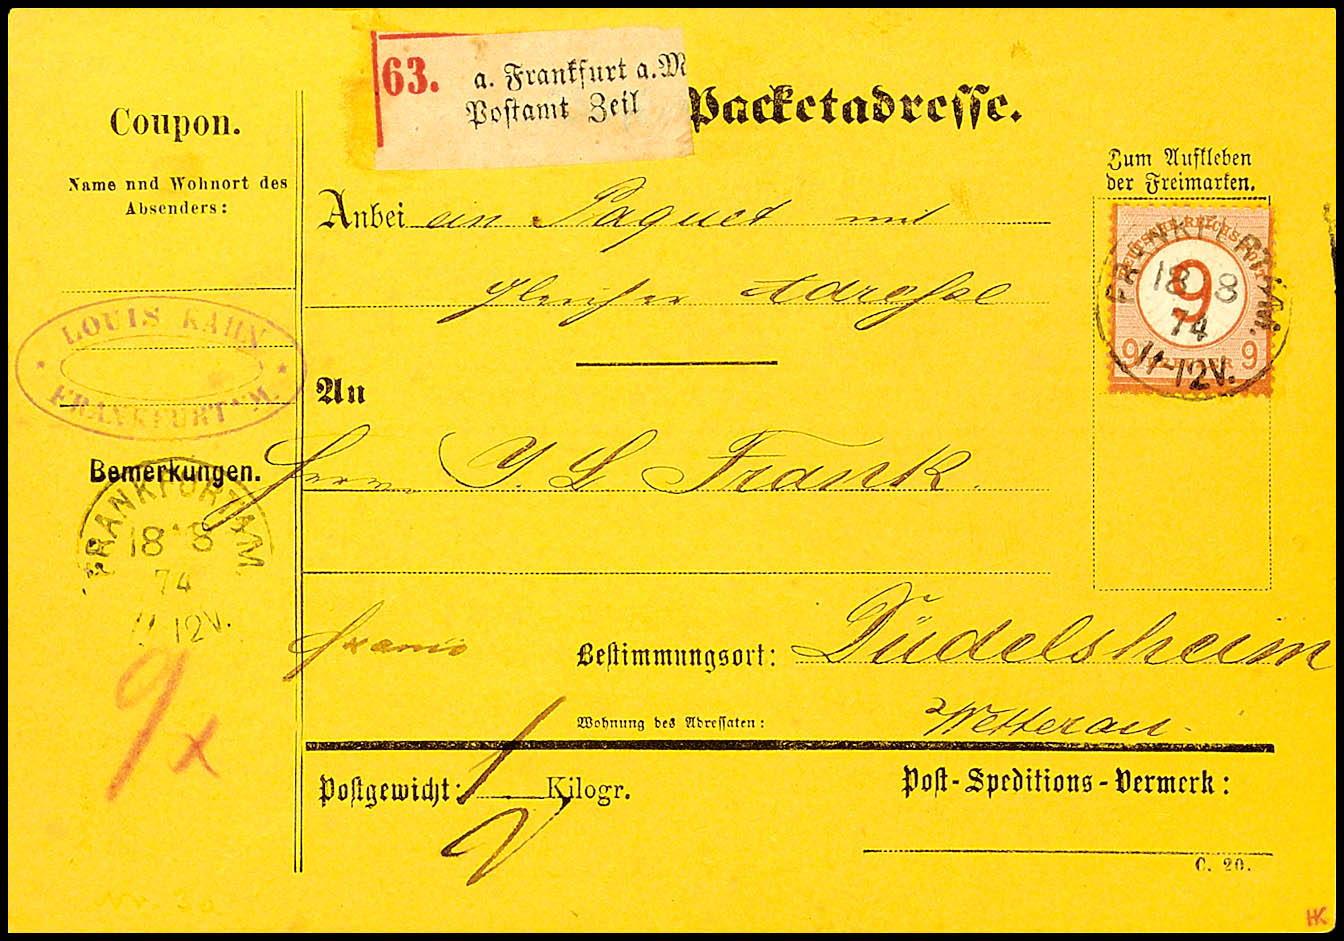 63. a. Frankfurt a. M
Postamt Zeil
Packetadresse.
Coupon.
Name nnd Wohnort des
Absenders:
LOUIS KAHN
FRANKFURT a/M.
Bemerkungen.
FRANKFURT A.M.
18 8
74
11-12V.
9x
Anbei ein Paquet mit
gleicher Adresse
An
Herrn J. L. Frank.
franco
Bestimmungsort: Düdelsheim
Wohnung des Adressaten: Wetterau.
Postgewicht: Kilogr.
Post-Speditions-Vermerk:
C. 20.
Zum Aufkleben
der Freimarken.
DEUTSCHE REICHS-POST
9
9 9
FRANKFURT A.M.
18 8
74
11-12V.
HK